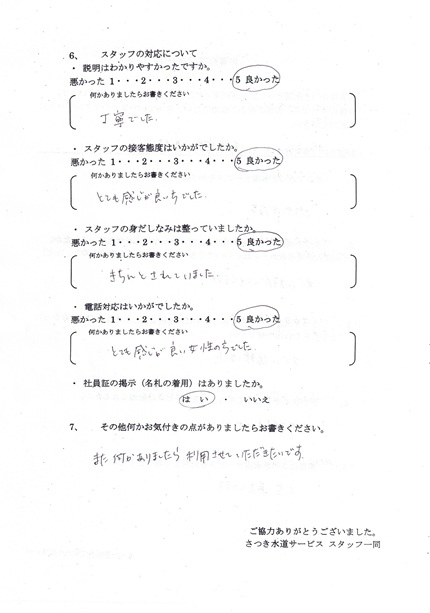 6、 スタッフの対応について
・ 説明はわかりやすかったですか。
悪かった 1・・・2・・・3・・・4・・・5 良かった
何かありましたらお書きください
丁寧でした。
・ スタッフの接客態度はいかがでしたか。
悪かった 1・・・2・・・3・・・4・・・5 良かった
何かありましたらお書きください
とても感じが良い方でした。
・ スタッフの身だしなみは整っていましたか。
悪かった 1・・・2・・・3・・・4・・・5 良かった
何かありましたらお書きください
きちんとされていました。
・ 電話対応はいかがでしたか。
悪かった 1・・・2・・・3・・・4・・・5 良かった
何かありましたらお書きください
とても感じが良い女性の方でした。
・ 社員証の掲示（名札の着用）はありましたか。
はい ・ いいえ
7、 その他何かお気付きの点がありましたらお書きください。
また何かありましたら利用させていただきたいです
ご協力ありがとうございました。
さつき水道サービス スタッフ一同